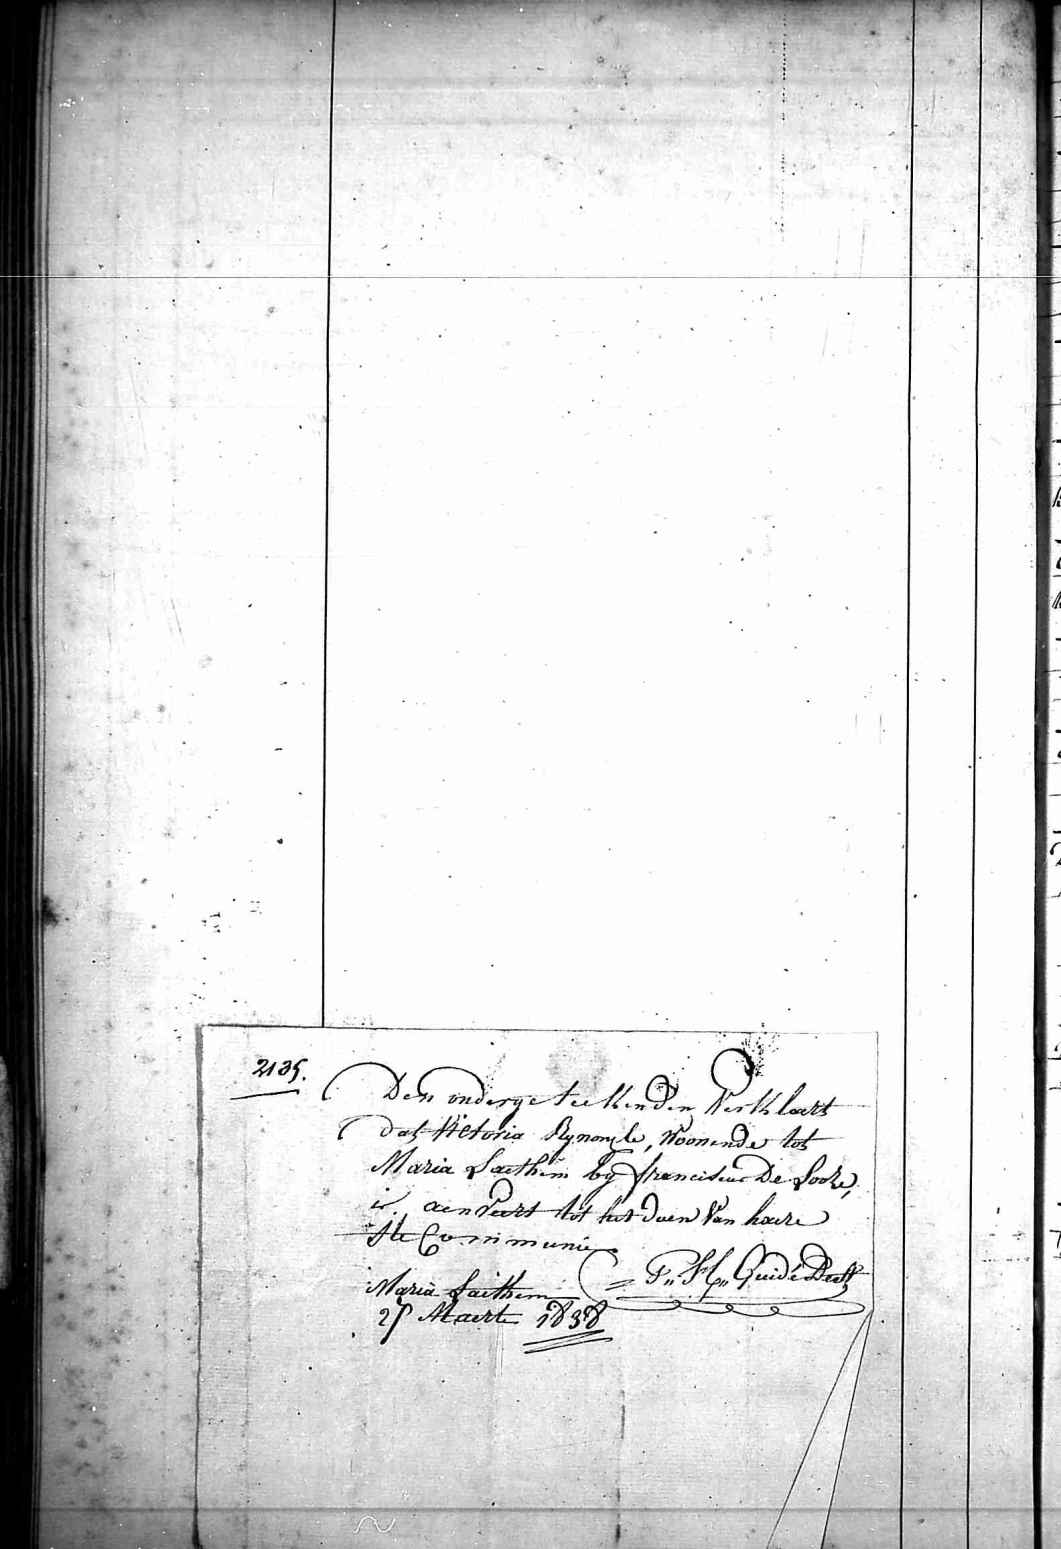 2135.
Den ondergeteekenden Verklaert
dat Victoria Rynoncle, Woonende tot
Maria Laethem by franciscus De Looze,
is aenVeert tot het doen Van haere
Ste Communie
= P. H.
Maria Laethem
25 Maerte 1838